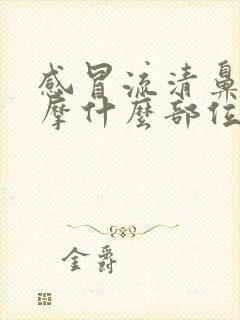 感冒流清鼻
摩什麼部位
金爵